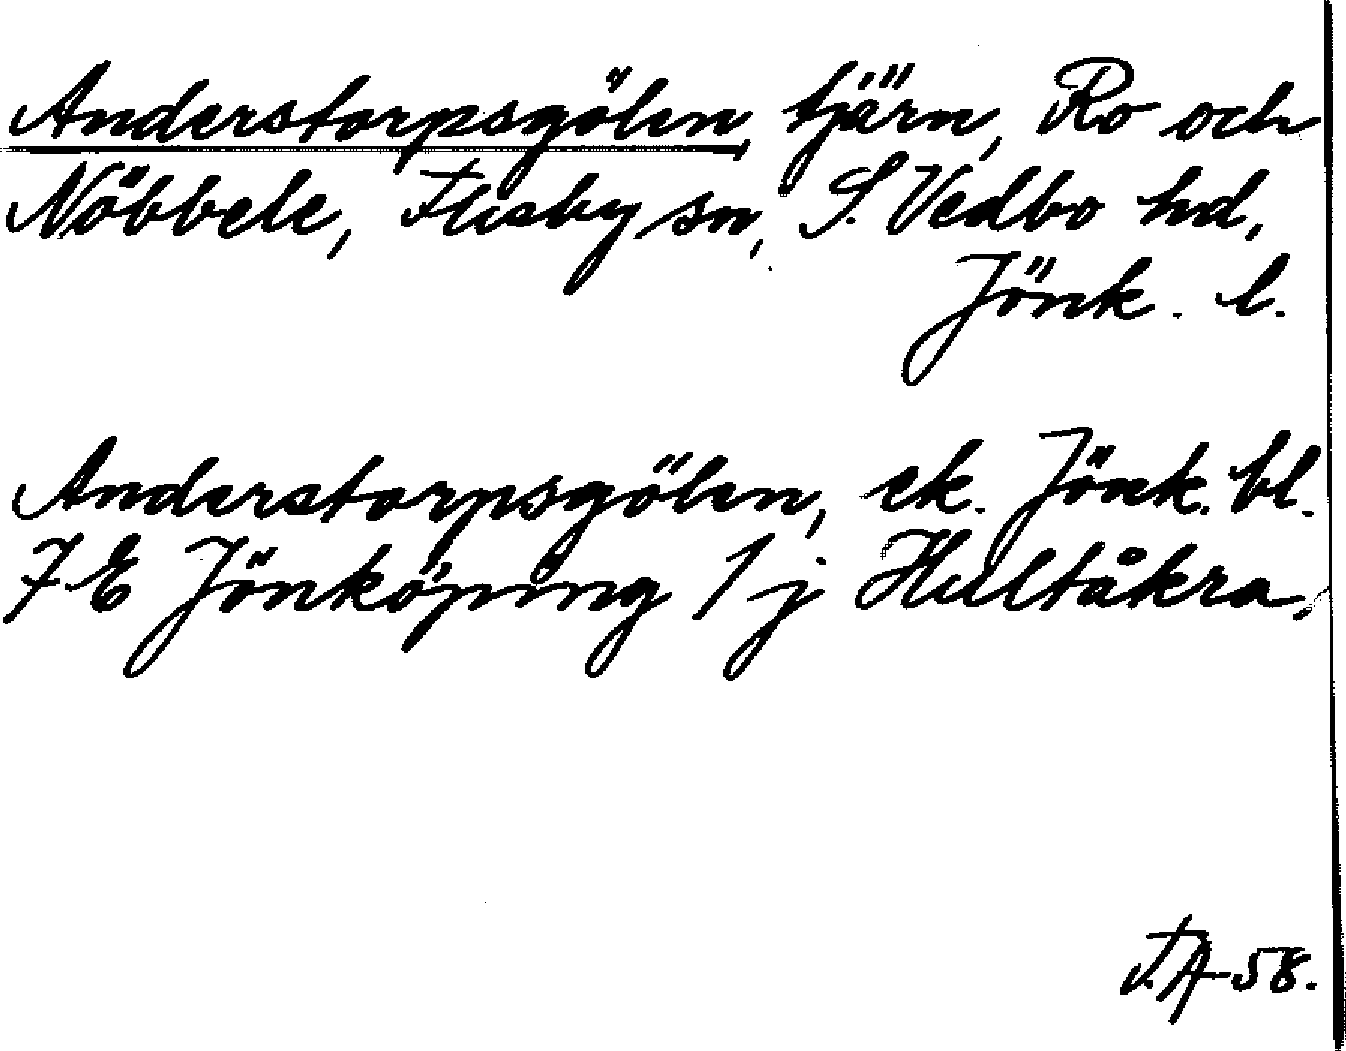 Anderstorpsgölen, tjärn, Ro och
Nöbbele, Flisby sn, S. Vedbo hd,
Jönk. l.
Anderstorpsgölen, ek. Jönk. bl.
7 E Jönköping 1 j Hultåkra.
F.A-58.